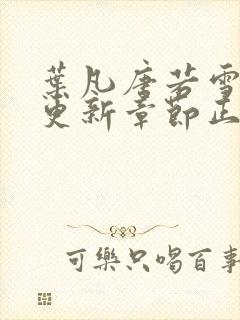 葉凡唐若雪
更新章節正
可樂只喝百事